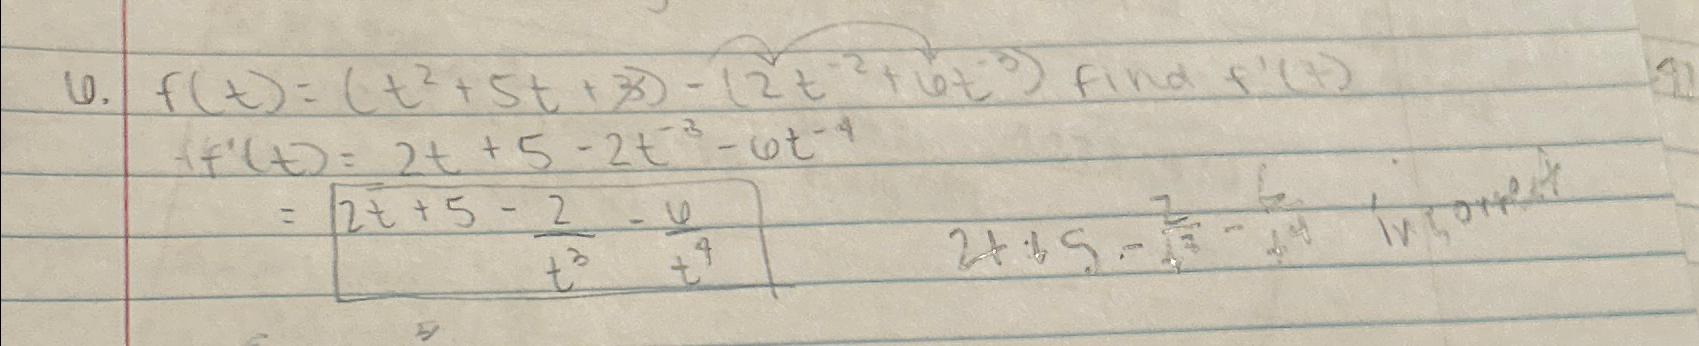 6. f(t) = (t² + 5t + 3) - (2t⁻² + 6t⁻³) find f'(t)
f'(t) = 2t + 5 - 2t⁻³ - 6t⁻⁴
= 2t + 5 - 2/t³ - 6/t⁴
2t + 5 - 2/t³ - 6/t⁴ incorrect